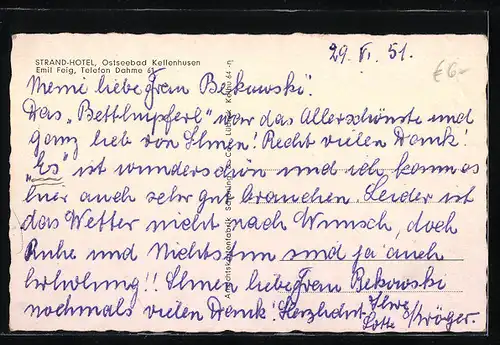 STRAND-HOTEL, Ostseebad Kellenhusen
Emil Feig, Telefon Dahme 61
29. VI. 51.
€6.-
Meine liebe Frau Bekowski!
Das „Betthupferl" war das Allerschönste und
ganz lieb von Ihnen! Recht vielen Dank!
„Es" ist wunderschön und ich kann es
hier auch sehr gut brauchen. Leider ist
das Wetter nicht nach Wunsch, doch
Ruhe und Nichtstun sind ja auch
Erholung!! Ihnen liebe Frau Bekowski
nochmals vielen Dank! Herzlichst Ihre
Lotte Kröger.
Ansichtskartenfabrik Co., Lübeck